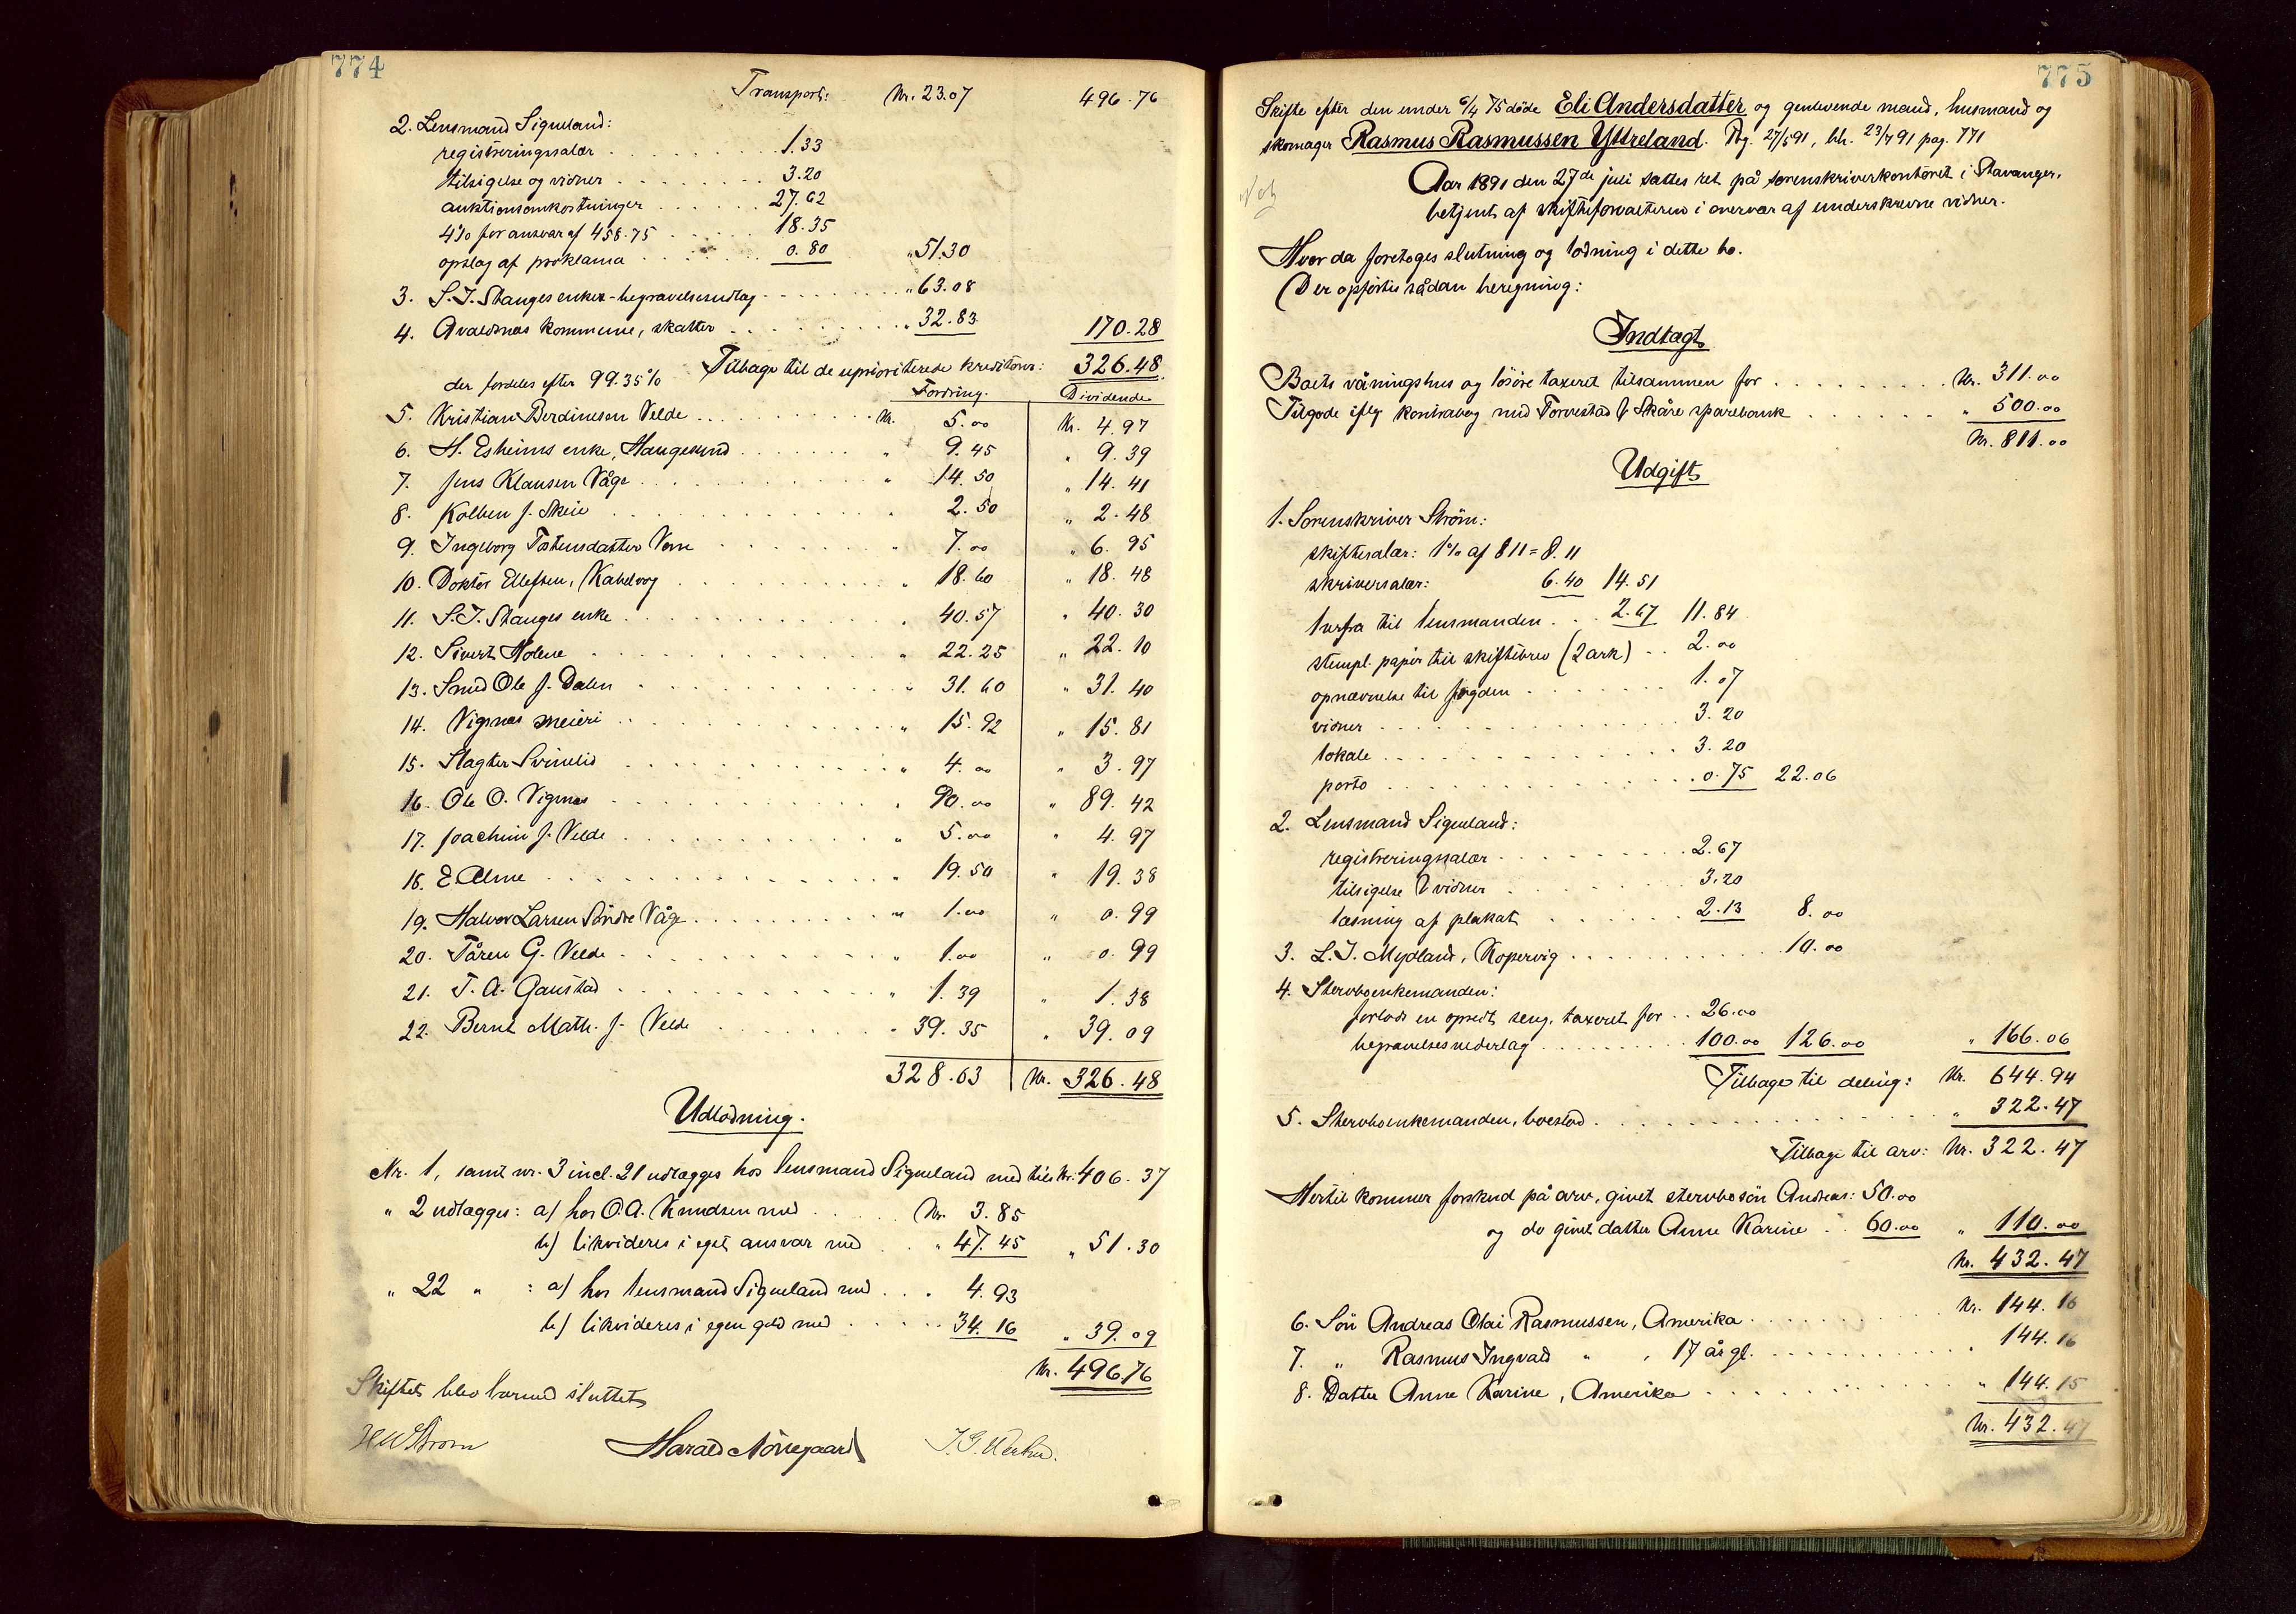 774
Transport: Kr. 23.07 496.76
2. Lensmand Sigueland:
registreringssalær 1.33
tilsigelse og vidner 3.20
auktionsomkostninger 27.62
4% for ansvar af 458.75 18.35
opslag af proklama 0.80 " 51.30
3. S. J. Stanges enke - begravelsesudlag " 63.08
4. Avaldsnæs kommune, skatter " 32.83 170.28
Tilbage til de uprioriterede kreditorer: 326.48
der fordeles efter 99.35%
Fordring. Dividende
5. Kristian Berdinesen Velde Kr. 5.00 Kr. 4.97
6. H. Esheims enke, Haugesund " 9.45 " 9.39
7. Jens Klausen Våge " 14.50 " 14.41
8. Kolben J. Skeie " 2.50 " 2.48
9. Ingeborg Tostensdatter Vorre " 7.00 " 6.95
10. Doktor Ellefsen, Kabelvog " 18.60 " 18.48
11. S. J. Stanges enke " 40.57 " 40.30
12. Sivert Holene " 22.25 " 22.10
13. Smed Ole J. Dalen " 31.60 " 31.40
14. Vignæs meieri " 15.92 " 15.81
15. Slagter Svinelid " 4.00 " 3.97
16. Ole O. Vignæs " 90.00 " 89.42
17. Joachim J. Velde " 5.00 " 4.97
18. E. Alme " 19.50 " 19.38
19. Halvor Larsen Söndre Våge " 1.00 " 0.99
20. Tåren G. Velde " 1.00 " 0.99
21. T. A. Gaustad " 1.39 " 1.38
22. Bernt Math. J. Velde " 39.35 " 39.09
328.63 Kr. 326.48
Udlodning.
Nr. 1, samt nr. 3 incl. 21 udlægges hos lensmand Sigueland med tils. Kr. 406.37
" 2 udlægges: a) hos O. A. Knudsen med Kr. 3.85
b) likvideres i eget ansvar med " 47.45 " 51.30
" 22 " : a) hos lensmand Sigueland med " 4.93
b) likvideres i egen gjeld med 34.16 " 39.09
Kr. 496.76
Skiftet blev hermed sluttet
HWStrøm Harald Nörregaard
775
Skifte efter den under 6/4 75 döde Eli Andersdatter og genlevende mand, husmand og
skomager Rasmus Rasmussen Yttreland. Reg. 27/5 91, beh. 23/7 91 pag. 771
Aar 1891 den 27de juli sattes ret på sorenskriverkontoret i Stavanger,
betjent af skifteforvalteren i overvær af underskrevne vidner.
Hvor da foretoges slutning og lodning i dette bo.
Der opförtes sådan beregning:
Indtægt
Boets våningshus og lösöre taxeret tilsammen for Kr. 311.00
Tilgode iflg kontrabog med Torvestad & Skåre sparebank " 500.00
Kr. 811.00
Udgift
1. Sorenskriver Ström:
skiftesalær: 1% af 811 = 8.11
skriversalær: 6.40 14.51
herfra til lensmanden 2.67 11.84
stempl. papir til skiftebrev (2 ark) 2.00
opnævnelse til fogden 1.07
vidner 3.20
lokale 3.20
porto 0.75 22.06
2. Lensmand Sigueland:
registreringssalær 2.67
tilsigelse & vidner 3.20
læsning af plakat 2.13 8.00
3. L. J. Mydland, Kopervig 10.00
4. Stervboenkemanden:
forlods en opredt seng, taxeret for 26.00
begravelsesvederlag 100.00 126.00 " 166.06
Tilbage til deling: Kr. 644.94
5. Stervboenkemanden, boeslod " 322.47
Tilbage til arv: Kr. 322.47
Hertil kommer forskud på arv, givet stervbosön Andreas: 50.00
og do givet datter Anne Karine 60.00 " 110.00
Kr. 432.47
6. Sön Andreas Olai Rasmussen, Amerika Kr. 144.16
7. " Rasmus Ingvald " , 17 år gl. " 144.16
8. Datter Anne Karine, Amerika " 144.15
Kr. 432.47